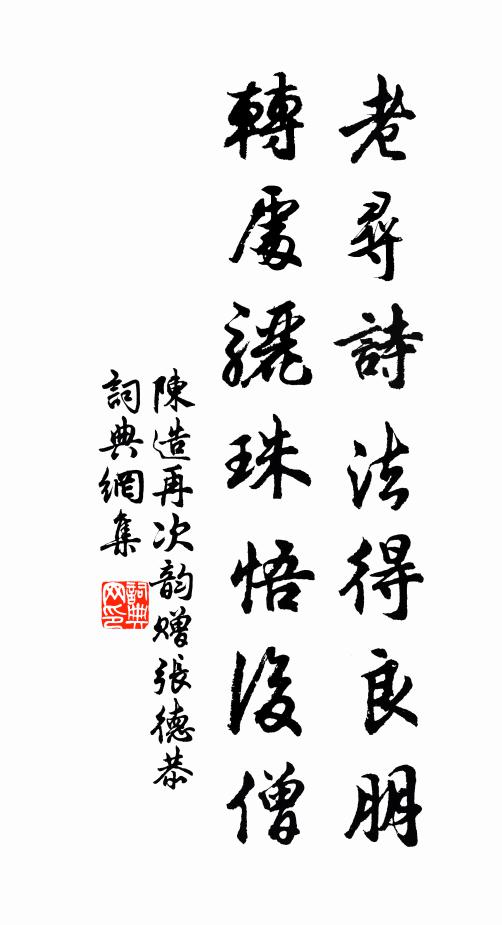 老尋詩法得良朋
轉處驪珠悟後僧
陳造再次韵赠張德恭
詞典網集
詞典网印